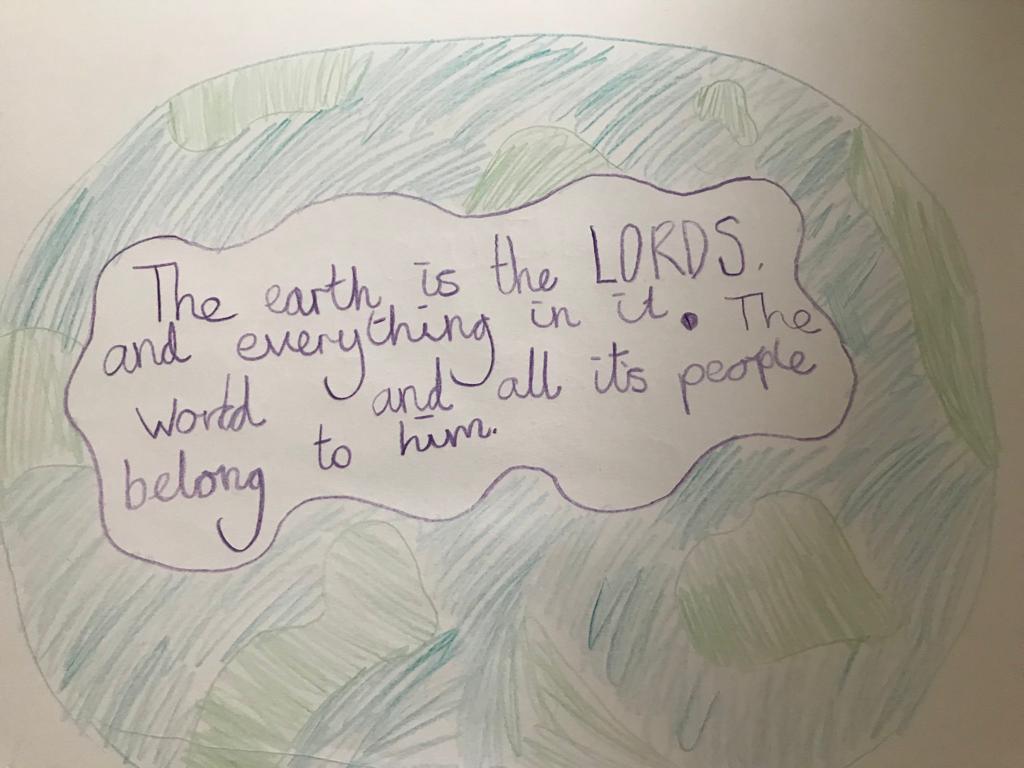 The earth is the LORDS.
and everything in it. The
world and all it's people
belong to him.